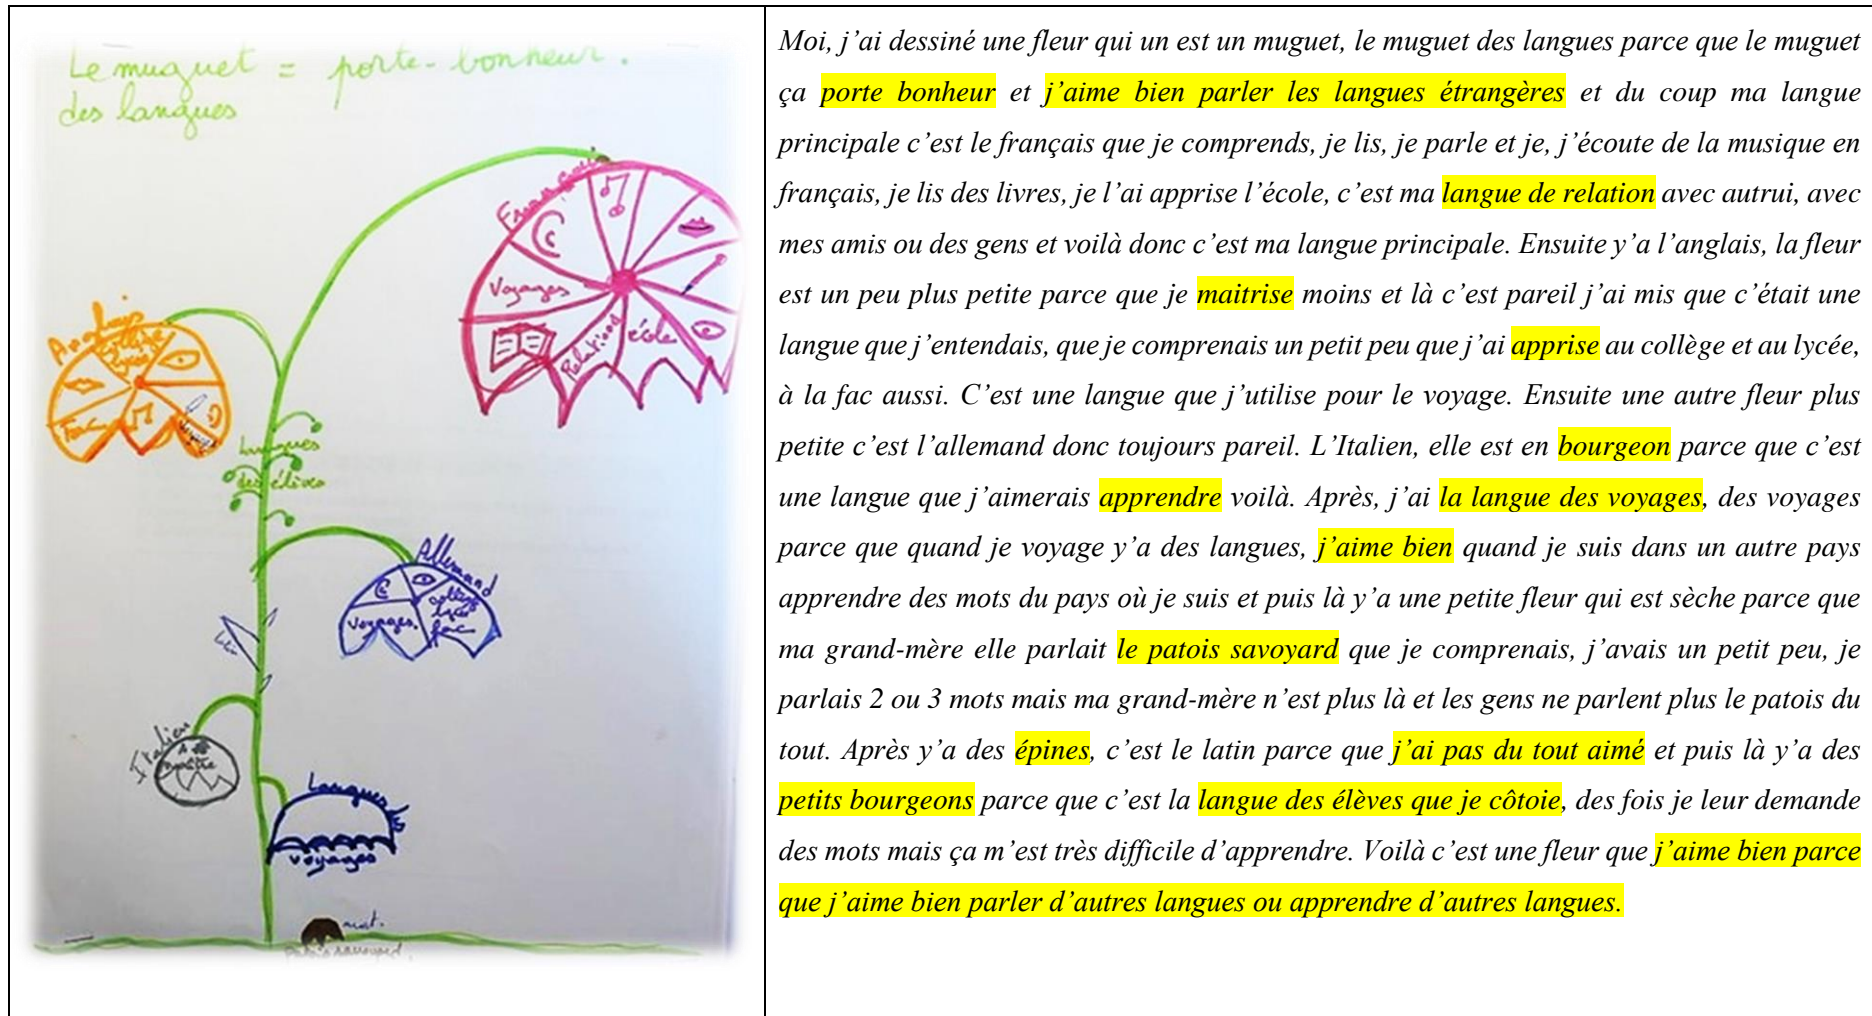 Le muguet = porte-bonheur.
des langues
Français
Voyages
Relations
école
Anglais
Collège
Lycée
Fac
Voyages
Langues
des élèves
Allemand
Voyages.
collège
lycée
fac
latin
Italien
A
naître
Langues des
voyages
mort.
Patois savoyard.
Moi, j’ai dessiné une fleur qui un est un muguet, le muguet des langues parce que le muguet
ça porte bonheur et j’aime bien parler les langues étrangères et du coup ma langue
principale c’est le français que je comprends, je lis, je parle et je, j’écoute de la musique en
français, je lis des livres, je l’ai apprise l’école, c’est ma langue de relation avec autrui, avec
mes amis ou des gens et voilà donc c’est ma langue principale. Ensuite y’a l’anglais, la fleur
est un peu plus petite parce que je maitrise moins et là c’est pareil j’ai mis que c’était une
langue que j’entendais, que je comprenais un petit peu que j’ai apprise au collège et au lycée,
à la fac aussi. C’est une langue que j’utilise pour le voyage. Ensuite une autre fleur plus
petite c’est l’allemand donc toujours pareil. L’Italien, elle est en bourgeon parce que c’est
une langue que j’aimerais apprendre voilà. Après, j’ai la langue des voyages, des voyages
parce que quand je voyage y’a des langues, j’aime bien quand je suis dans un autre pays
apprendre des mots du pays où je suis et puis là y’a une petite fleur qui est sèche parce que
ma grand-mère elle parlait le patois savoyard que je comprenais, j’avais un petit peu, je
parlais 2 ou 3 mots mais ma grand-mère n’est plus là et les gens ne parlent plus le patois du
tout. Après y’a des épines, c’est le latin parce que j’ai pas du tout aimé et puis là y’a des
petits bourgeons parce que c’est la langue des élèves que je côtoie, des fois je leur demande
des mots mais ça m’est très difficile d’apprendre. Voilà c’est une fleur que j’aime bien parce
que j’aime bien parler d’autres langues ou apprendre d’autres langues.